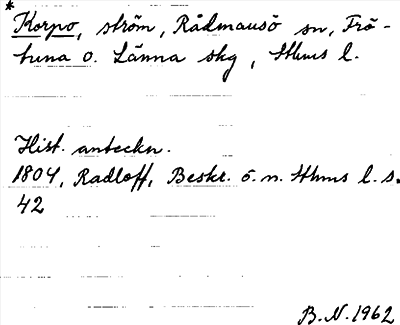 * Korpo, ström, Rådmansö sn, Frö-
tuna o. Länna skg, Sthms l.
Hist. anteckn.
1804, Radloff, Beskr. ö. n. Sthms l. s.
42
B.N. 1962